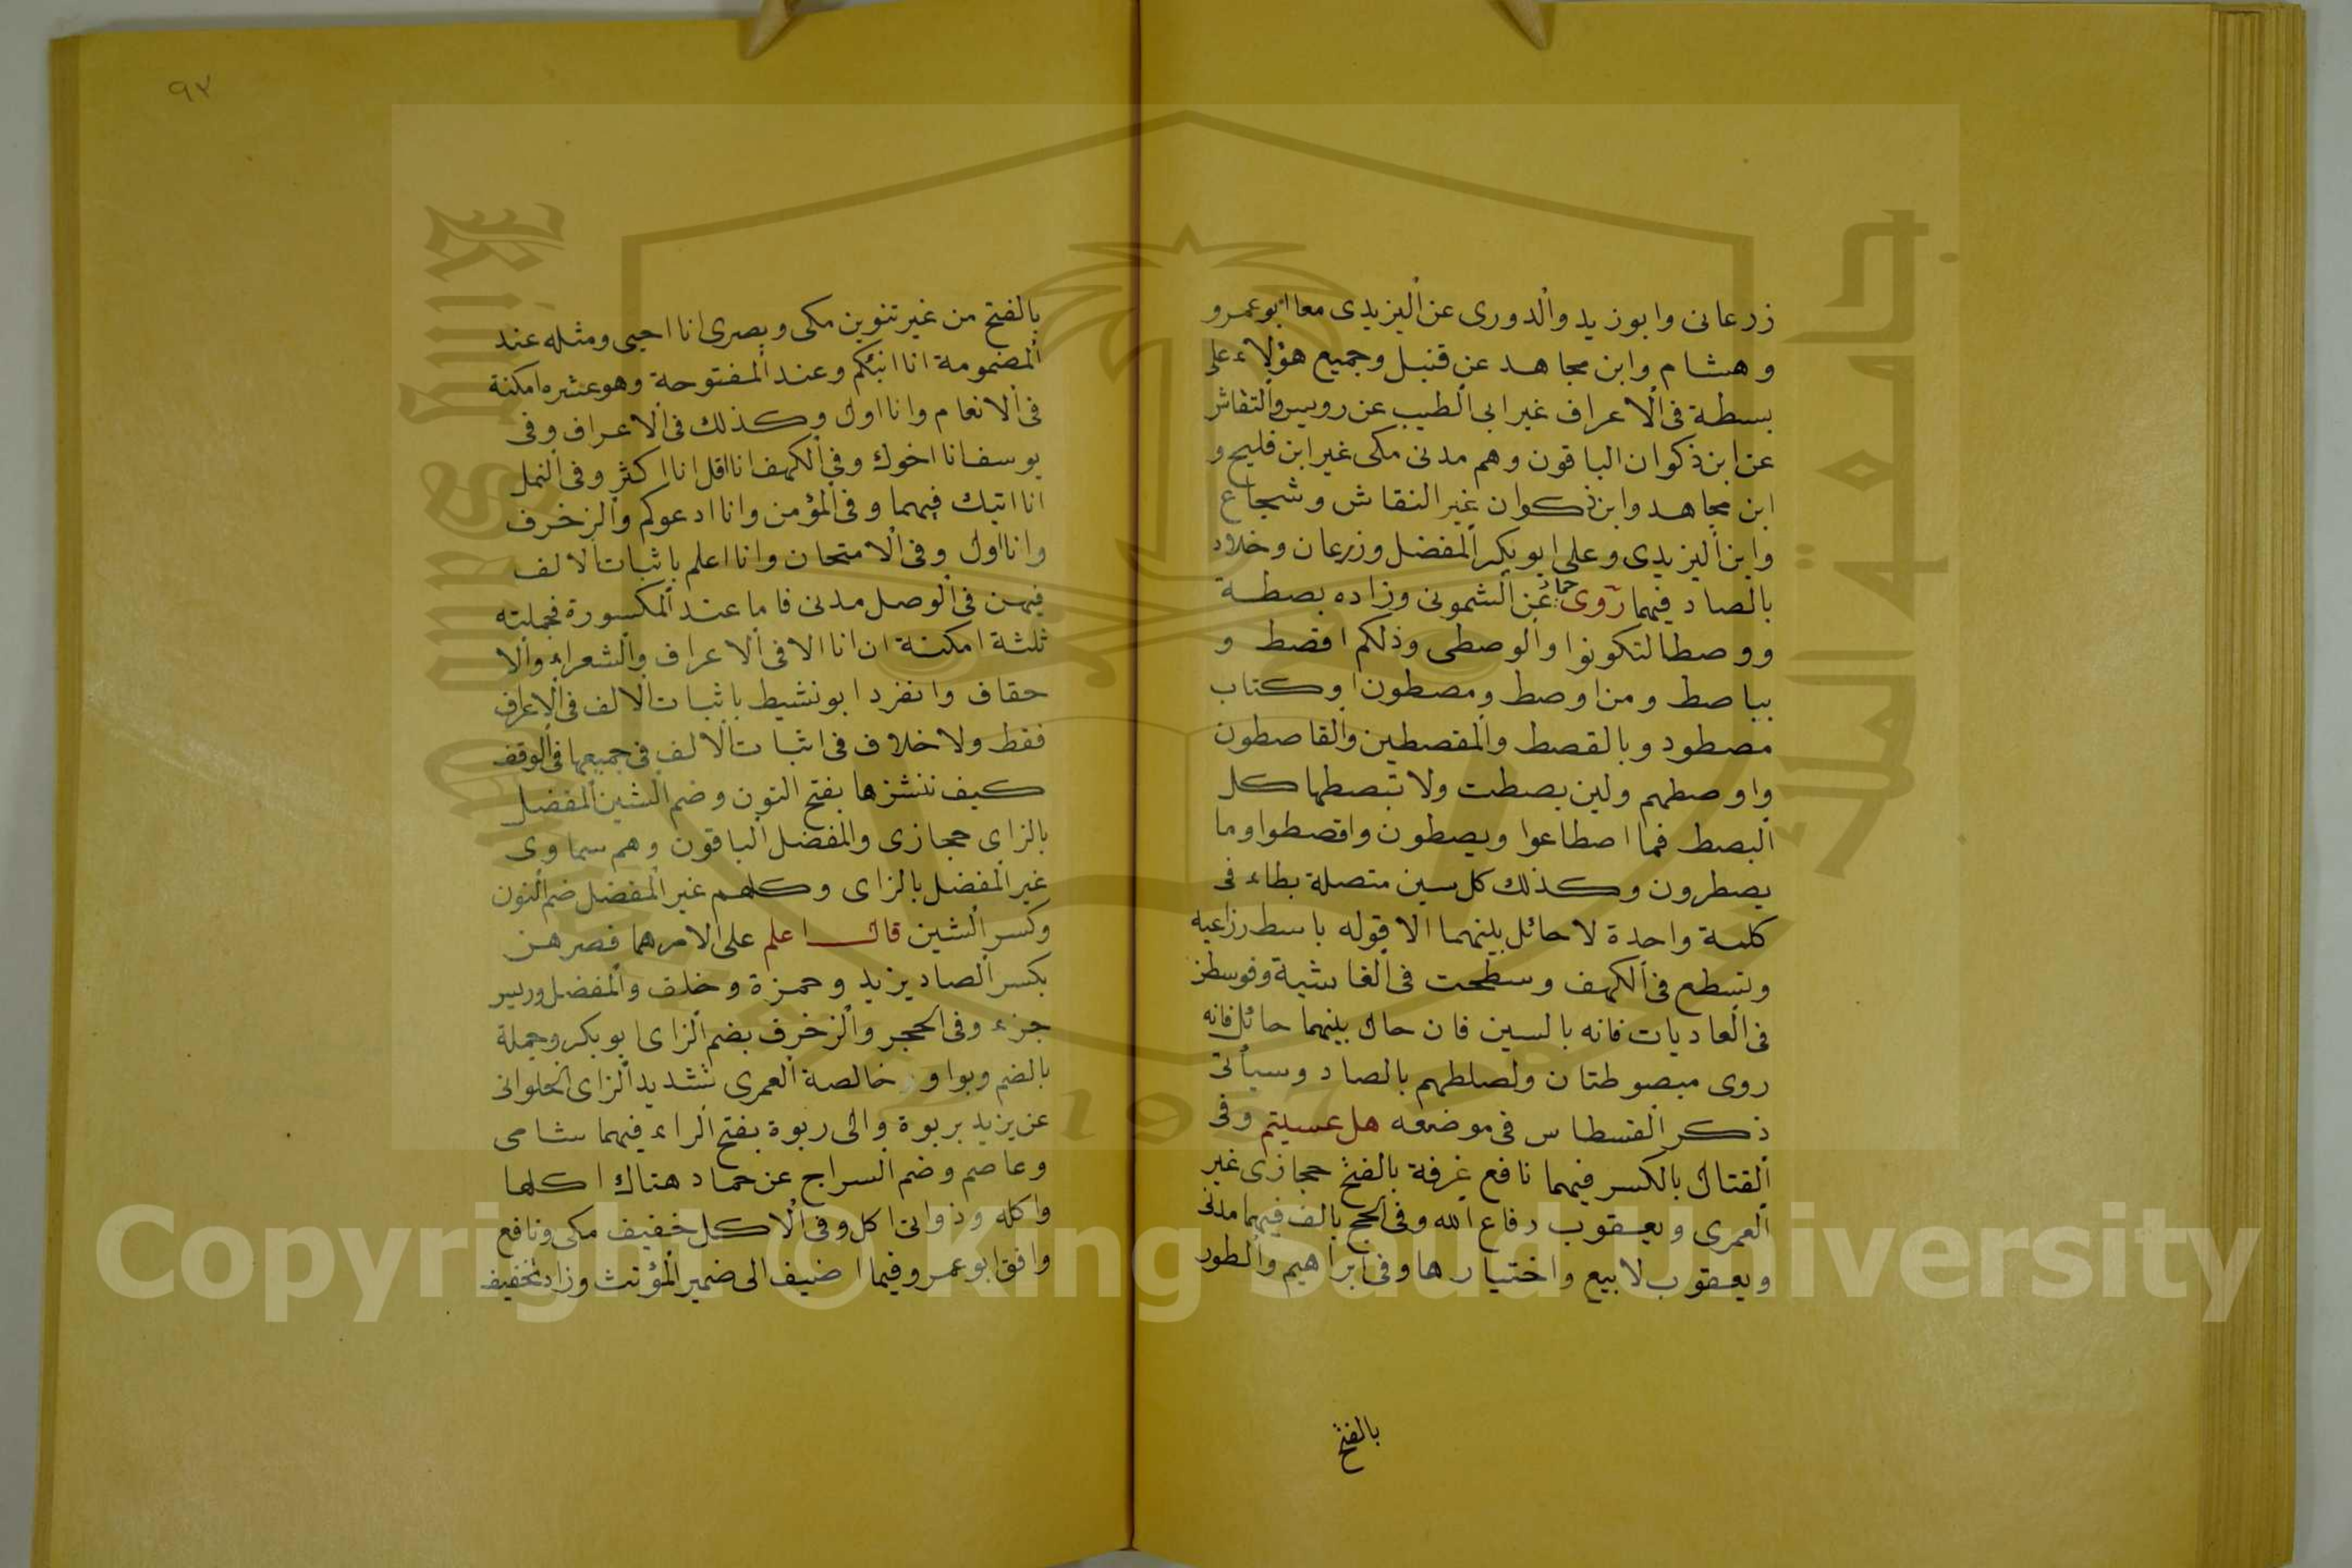 زرعانى وابوزيد والدورى عن اليزيدى معا ابوعمرو
وهشام وابن مجاهد عن قنبل وجميع هؤلاء على
بسطة فى الاعراف غير ابى الطيب عن رويس والنقاش
عن ابن ذكوان الباقون وهم مدنى مكى غير ابن فليح و
ابن مجاهد وابن ذكوان غير النقاش وشجاع
وابن اليزيدى وعلى ابوبكر المفضل وزرعان وخلاد
بالصاد فيهما روى حماد عن الشمونى وزاده بصطة
ووصطا لتكونوا والوصطى وذلكم اقصط و
بباصط ومن اوصط ومصطون وكتاب
مصطود وبالقصط والمقصطين والقاصطون
واوصطهم ولين بصطت ولا تبصطها كل
البصط فما اصطاعوا ويصطون واقصطوا وما
يصطرون وكذلك كل سين متصلة بطاء فى
كلمة واحدة لا حائل بينهما الا قوله باسط رزاعيه
وتسطع فى الكهف وسطحت فى الغاشية وفوسطن
فى العاديات فانه بالسين فان حال بينهما حائل فانه
روى مبصوطتان ولصلطهم بالصاد وسيأتى
ذكر القسطاس فى موضعه هل عسيتم وفى
القتال بالكسر فيهما نافع غرفة بالفتح حجازى غير
العمرى ويعقوب دفاع الله وفى الحج بالف فيهما مدنى
ويعقوب لا بيع واختيارها وفى ابراهيم والطور
بالفتح
٩٣
بالفتح من غير تنوين مكى وبصرى انا احيى ومثله عند
المضمومة انا انبئكم وعند المفتوحة وهو عشره امكنة
فى الانعام وانا اول وكذلك فى الاعراف وفى
يوسف انا اخوك وفى الكهف انا اقل انا اكثر وفى النمل
انا اتيك فيهما وفى المؤمن وانا ادعوكم والزخرف
وانا اول وفى الامتحان وانا اعلم باثبات الالف
فيهن فى الوصل مدنى فاما عند المكسورة فجملته
ثلثة امكنة ان انا الا فى الاعراف والشعراء والا
حقاف وانفرد ابونشيط باثبات الالف فى الاعراف
فقط ولا خلاف فى اثبات الالف فى جميعها فى الوقف
كيف ننشزها بفتح النون وضم الشين المفضل
بالزاى حجازى والمفضل الباقون وهم سماوى
غير المفضل بالزاى وكلهم غير المفضل ضم النون
وكسر الشين قال اعلم على الامرهما فصرهن
بكسر الصاد يزيد وحمزة وخلف والمفضل ورويس
جزء وفى الحجر والزخرف بضم الزاى ابوبكر وجملة
بالضم وبواو خالصة العمرى بتشديد الزاى الحلوانى
عن يزيد بربوة والى ربوة بفتح الراء فيهما شامى
وعاصم وضم السراج عن حماد هناك اكلها
واكله وذواتى اكل وفى الاكل خفيف مكى ونافع
وافق ابوعمرو فيما اضيف الى ضمير المؤنث وزاد تخفيف
Copyright © King Saud University
1957